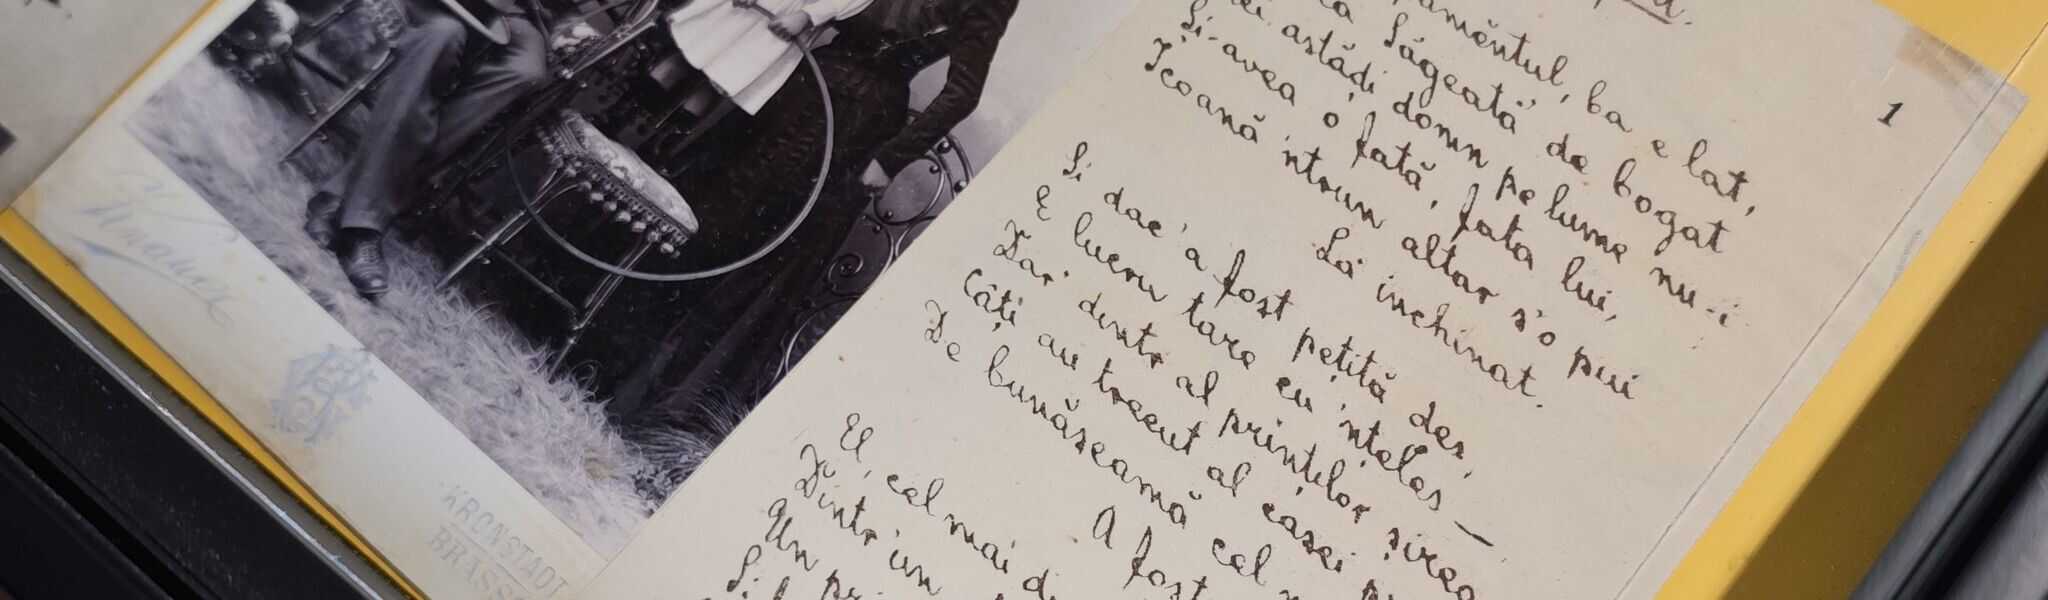 pamêntul, ba e lat,
Săgeată de bogat
astăḑi domn pe lume nu-i
Și-avea o fată, fata lui,
Icoană 'ntrun altar s'o pui
La inchinat.
Și dac'a fost pețită des,
E lucru tare cu 'nțeles —
Dar dintr'al prinților șirag
Câți au trecut al casei
De bunăseamă cel
A fost
El, cel mai
Dintr'un
Un
Și
1
KRONSTADT
BRASSÓ